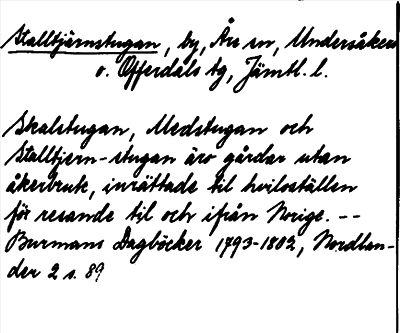 Stalltjärnstugan, by, Åre sn, Undersåkers
o. Offerdals tg, Jämtl. l.
Skalstugan, Medstugan och
Stalltjern-stugan äro gårdar utan
åkerbruk, inrättade til hviloställen
för resande til och ifrån Norige. --
Burmans Dagböcker 1793-1802, Nordlan-
der 2 s. 89